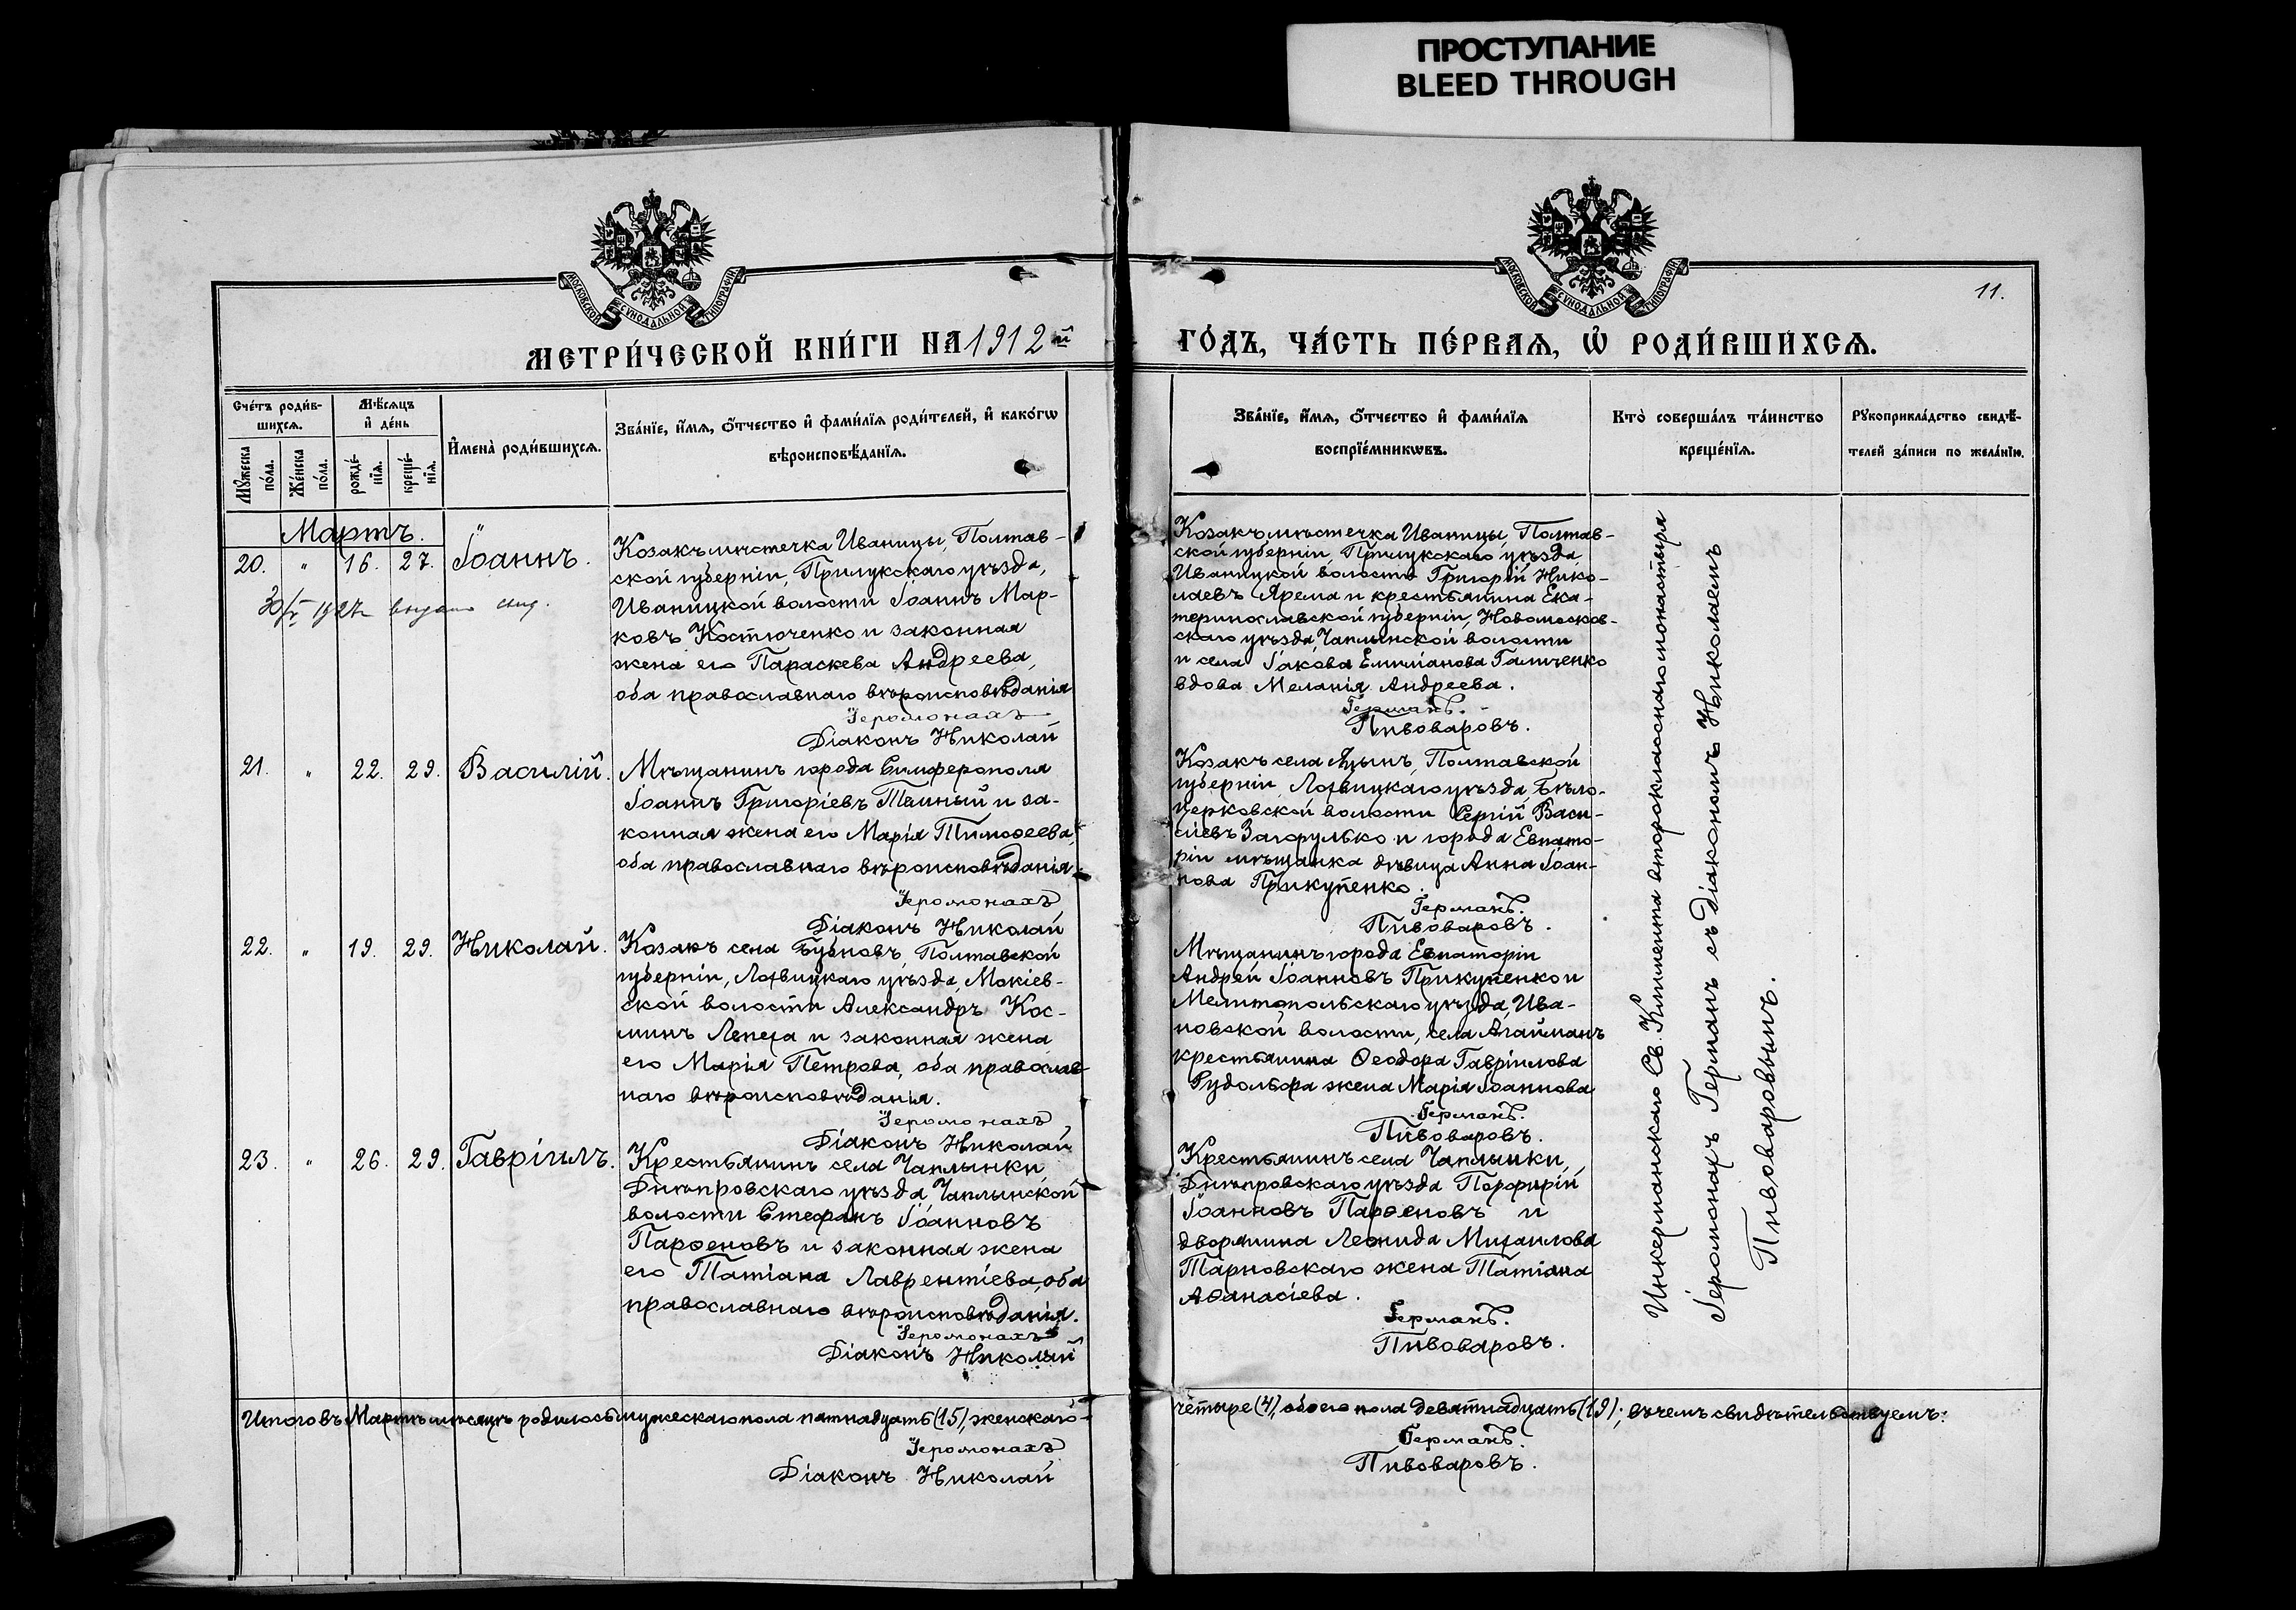 ПРОСТУПАНИЕ
BLEED THROUGH
МОСКОВСКОЙ СУНОДАЛЬНОЙ ТИПОГРАФІИ
МОСКОВСКОЙ СУНОДАЛЬНОЙ ТИПОГРАФІИ
11.
МЕТРИ́ЧЕСКОЙ КНИ́ГИ НА 1912й
ГО́ДЪ, ЧА́СТЬ ПЕ́РВАѦ, Ѡ РОДИ́ВШИХСѦ.
Сче́тъ роди́в-
шихсѧ.
Мꙋ́жеска по́ла.
Же́нска по́ла.
Мѣ́сѧцъ
и҆ де́нь
рожде́-
нїѧ.
креще́-
нїѧ.
И҆мена̀ роди́вшихсѧ.
Зва́нїе, и҆́мѧ, ѻ҆́тчество и҆ фами́лїѧ роди́телей, и҆ како́гѡ
вѣроисповѣ́данїѧ.
Зва́нїе, и҆́мѧ, ѻ҆́тчество и҆ фами́лїѧ
воспрїе́мникѡвъ.
Кто̀ соверша́лъ та́инство
креще́нїѧ.
Рꙋкоприкла́дство свидѣ́-
телей за́писи по жела́нїю.
Мартъ.
20. " 16. 27. Іоаннъ.
30/V 1927 г. выдано свид.
Козакъ мѣстечка Иваницы, Полтав-
ской губерніи, Прилукскаго уѣзда,
Иваницкой волости Іоаннъ Мар-
ковъ Костюченко и законная
жена его Параскева Андреева,
оба православнаго вѣроисповѣданія
Іеромонахъ
Діаконъ Николай
Козакъ мѣстечка Иваницы, Полтав-
ской губерніи, Прилукскаго уѣзда,
Иваницкой волости Григорій Нико-
лаевъ Ярема и крестьянина Ека-
теринославской губерніи, Новомосков-
скаго уѣзда, Чаплынской волости
и села Іакова Емиліанова Галиченко
вдова Меланія Андреева.
Германъ.
Пивоваровъ.
21. " 22. 29. Василій.
Мѣщанинъ города Симферополя
Іоаннъ Григоріевъ Темный и за-
конная жена его Марія Тимоѳеева,
оба православнаго вѣроисповѣданія.
Іеромонахъ
Діаконъ Николай
Козакъ села Яцынъ, Полтавской
губерніи, Лохвицкаго уѣзда, Бѣло-
церковской волости Сергій Васи-
ліевъ Загорулько и города Евпато-
ріи мѣщанка дѣвица Анна Іоан-
нова Прикупенко.
Германъ.
Пивоваровъ.
22. " 19. 29. Николай.
Козакъ села Бубновъ, Полтавской
губерніи, Лохвицкаго уѣзда, Мокіев-
ской волости Александръ Кос-
минъ Лепеха и законная жена
его Марія Петрова, оба православ-
наго вѣроисповѣданія.
Іеромонахъ
Діаконъ Николай
Мѣщанинъ города Евпаторіи
Андрей Іоанновъ Прикупенко и
Мелитопольскаго уѣзда, Ива-
новской волости, села Агайманъ
крестьянина Ѳеодора Гавріилова
Рудольфа жена Марія Іоаннова
Германъ.
Пивоваровъ.
23. " 26. 29. Гавріилъ.
Крестьянинъ села Чаплынки,
Днѣпровскаго уѣзда Чаплынской
волости Стефанъ Іоанновъ
Парѳеновъ и законная жена
его Татіана Лаврентіева, оба
православнаго вѣроисповѣданія.
Іеромонахъ
Діаконъ Николай
Крестьянинъ села Чаплынки,
Днѣпровскаго уѣзда Порфирій
Іоанновъ Парѳеновъ и
дворянина Леонида Михаилова
Тарновскаго жена Татіана
Аѳанасіева.
Германъ.
Пивоваровъ.
Инкерманскаго Св. Климента второкласснаго монастыря
Іеромонахъ Германъ съ діакономъ Николаемъ
Пивоваровымъ.
Итого въ Мартѣ мѣсяцѣ родилось мужескаго пола пятнадцать (15), женскаго-
четыре (4), обоего пола девятнадцать (19); въ чемъ свидѣтельствуемъ:
Іеромонахъ
Германъ.
Діаконъ Николай
Пивоваровъ.